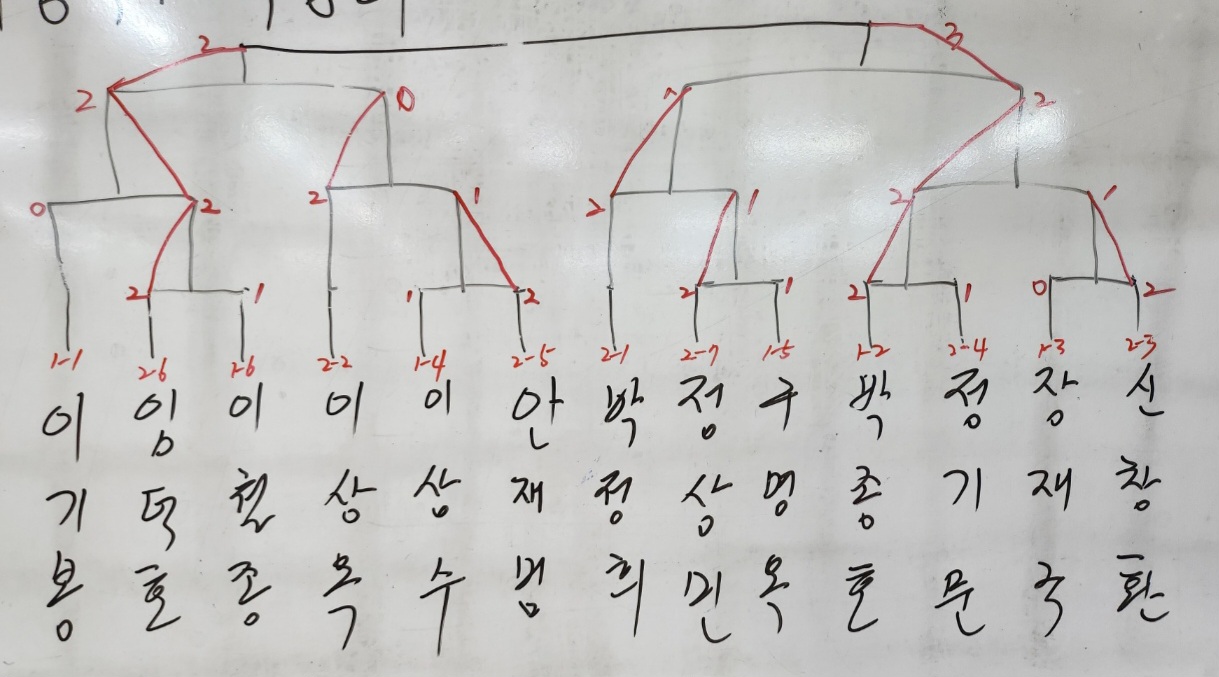 2 3
2 0 1 2
0 2 2 1 2 1 2 1
2 1 1 2 2 1 2 1 0 2
1-1 2-6 1-6 2-2 1-4 2-5 2-1 2-7 1-5 1-2 2-4 1-3 2-3
이 임 이 이 이 안 박 정 구 박 정 장 신
기 덕 철 상 상 재 정 상 명 종 기 재 창
봉 호 종 옥 수 범 희 민 옥 호 문 국 환